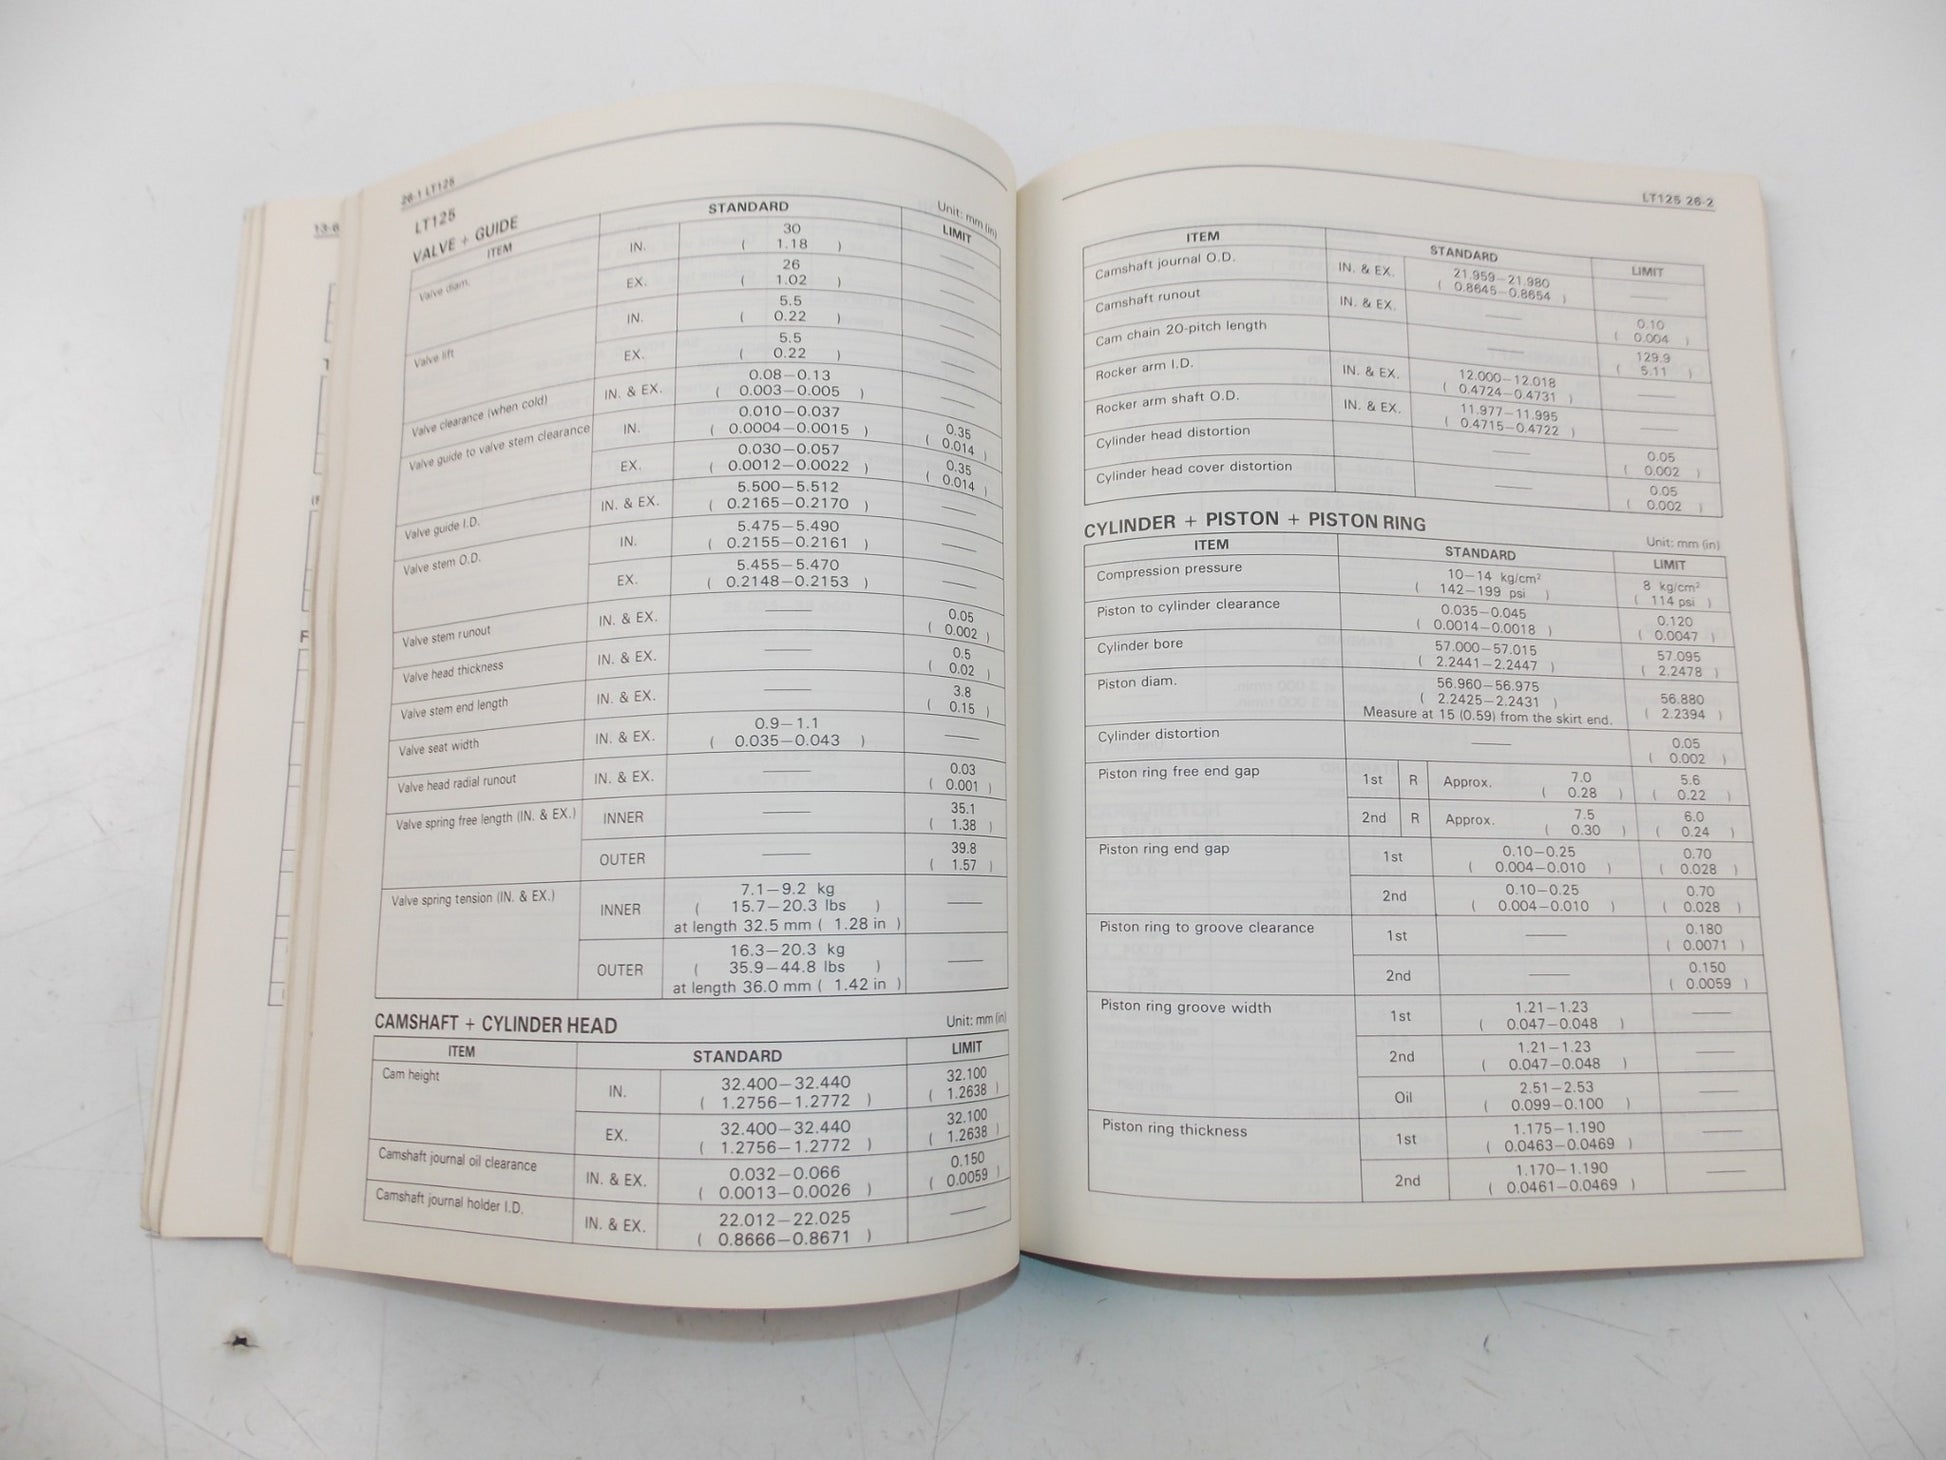 13-6
26-1 LT125
LT125
VALVE + GUIDE
Unit: mm (in)
ITEM STANDARD LIMIT
Valve diam. IN. 30 ( 1.18 ) ——
EX. 26 ( 1.02 ) ——
Valve lift IN. 5.5 ( 0.22 ) ——
EX. 5.5 ( 0.22 ) ——
Valve clearance (when cold) IN. & EX. 0.08—0.13 ( 0.003—0.005 ) ——
Valve guide to valve stem clearance IN. 0.010—0.037 ( 0.0004—0.0015 ) 0.35 ( 0.014 )
EX. 0.030—0.057 ( 0.0012—0.0022 ) 0.35 ( 0.014 )
Valve guide I.D. IN. & EX. 5.500—5.512 ( 0.2165—0.2170 ) ——
Valve stem O.D. IN. 5.475—5.490 ( 0.2155—0.2161 ) ——
EX. 5.455—5.470 ( 0.2148—0.2153 ) ——
Valve stem runout IN. & EX. —— 0.05 ( 0.002 )
Valve head thickness IN. & EX. —— 0.5 ( 0.02 )
Valve stem end length IN. & EX. —— 3.8 ( 0.15 )
Valve seat width IN. & EX. 0.9—1.1 ( 0.035—0.043 ) ——
Valve head radial runout IN. & EX. —— 0.03 ( 0.001 )
Valve spring free length (IN. & EX.) INNER —— 35.1 ( 1.38 )
OUTER —— 39.8 ( 1.57 )
Valve spring tension (IN. & EX.) INNER 7.1—9.2 kg ( 15.7—20.3 lbs ) at length 32.5 mm ( 1.28 in ) ——
OUTER 16.3—20.3 kg ( 35.9—44.8 lbs ) at length 36.0 mm ( 1.42 in ) ——
CAMSHAFT + CYLINDER HEAD
Unit: mm (in)
ITEM STANDARD LIMIT
Cam height IN. 32.400—32.440 ( 1.2756—1.2772 ) 32.100 ( 1.2638 )
EX. 32.400—32.440 ( 1.2756—1.2772 ) 32.100 ( 1.2638 )
Camshaft journal oil clearance IN. & EX. 0.032—0.066 ( 0.0013—0.0026 ) 0.150 ( 0.0059 )
Camshaft journal holder I.D. IN. & EX. 22.012—22.025 ( 0.8666—0.8671 ) ——
LT125 26-2
ITEM STANDARD LIMIT
Camshaft journal O.D. IN. & EX. 21.959—21.980 ( 0.8645—0.8654 ) ——
Camshaft runout IN. & EX. —— 0.10 ( 0.004 )
Cam chain 20-pitch length —— 129.9 ( 5.11 )
Rocker arm I.D. IN. & EX. 12.000—12.018 ( 0.4724—0.4731 ) ——
Rocker arm shaft O.D. IN. & EX. 11.977—11.995 ( 0.4715—0.4722 ) ——
Cylinder head distortion —— 0.05 ( 0.002 )
Cylinder head cover distortion —— 0.05 ( 0.002 )
CYLINDER + PISTON + PISTON RING
Unit: mm (in)
ITEM STANDARD LIMIT
Compression pressure 10—14 kg/cm² ( 142—199 psi ) 8 kg/cm² ( 114 psi )
Piston to cylinder clearance 0.035—0.045 ( 0.0014—0.0018 ) 0.120 ( 0.0047 )
Cylinder bore 57.000—57.015 ( 2.2441—2.2447 ) 57.095 ( 2.2478 )
Piston diam. 56.960—56.975 ( 2.2425—2.2431 ) Measure at 15 (0.59) from the skirt end. 56.880 ( 2.2394 )
Cylinder distortion —— 0.05 ( 0.002 )
Piston ring free end gap 1st R Approx. 7.0 ( 0.28 ) 5.6 ( 0.22 )
2nd R Approx. 7.5 ( 0.30 ) 6.0 ( 0.24 )
Piston ring end gap 1st 0.10—0.25 ( 0.004—0.010 ) 0.70 ( 0.028 )
2nd 0.10—0.25 ( 0.004—0.010 ) 0.70 ( 0.028 )
Piston ring to groove clearance 1st —— 0.180 ( 0.0071 )
2nd —— 0.150 ( 0.0059 )
Piston ring groove width 1st 1.21—1.23 ( 0.047—0.048 ) ——
2nd 1.21—1.23 ( 0.047—0.048 ) ——
Oil 2.51—2.53 ( 0.099—0.100 ) ——
Piston ring thickness 1st 1.175—1.190 ( 0.0463—0.0469 ) ——
2nd 1.170—1.190 ( 0.0461—0.0469 ) ——